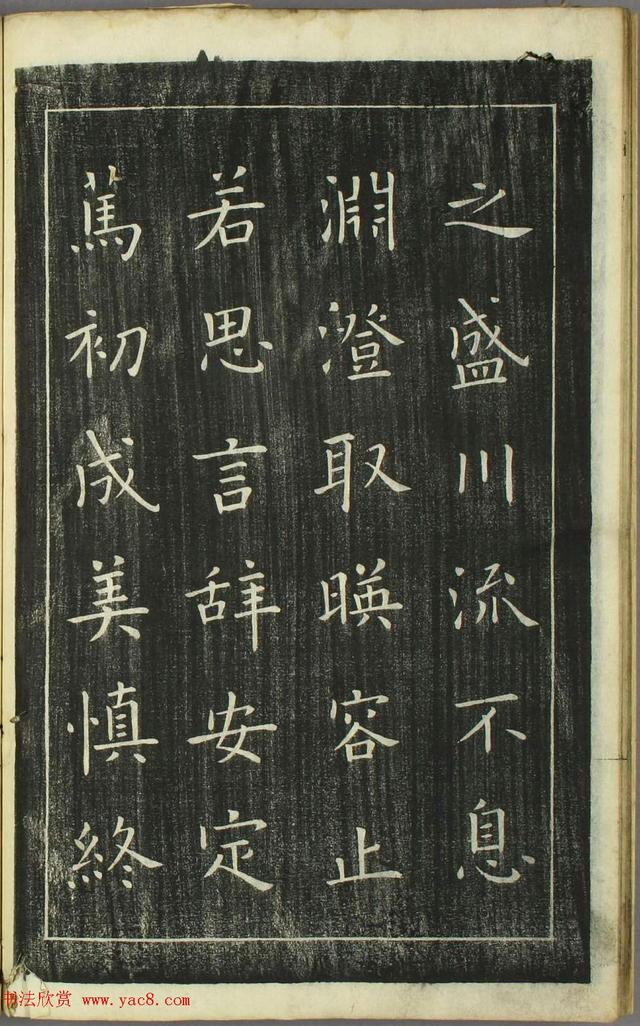 之盛川流不息
淵澄取暎容止
若思言辞安定
篤初成美慎終
书法欣赏 www.yac8.com